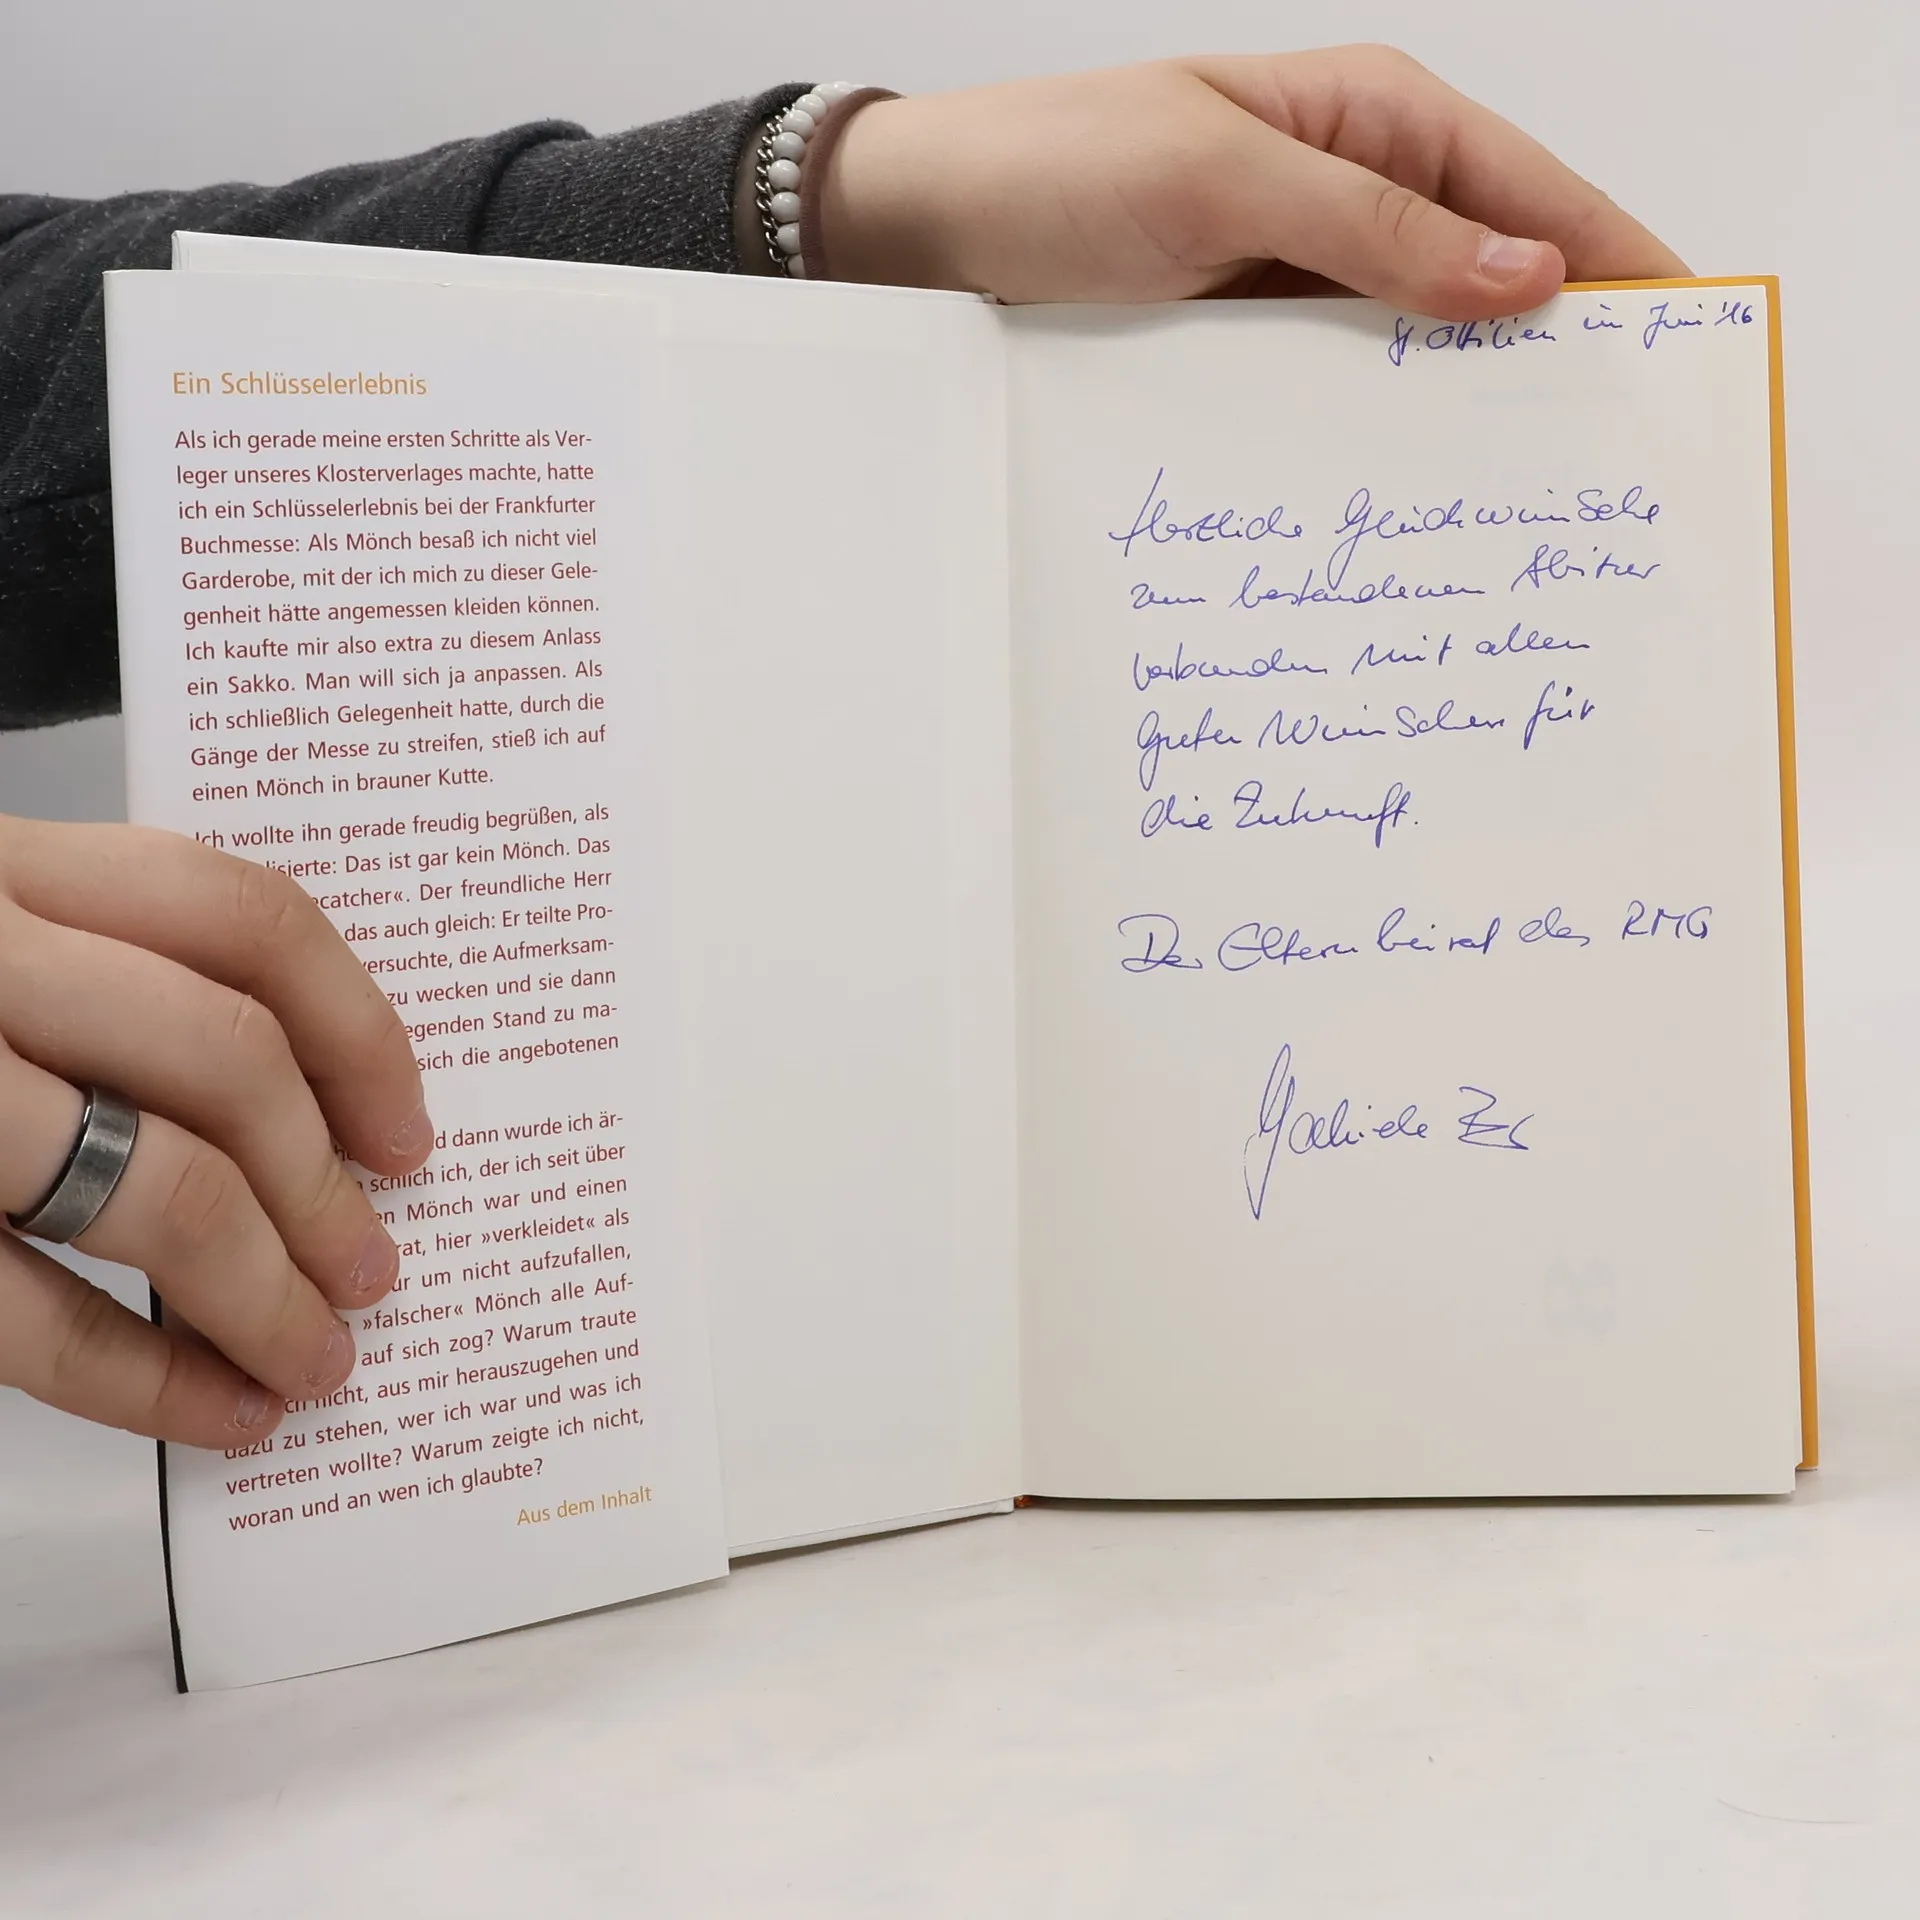 Ein Schlüsselerlebnis
Als ich gerade meine ersten Schritte als Ver-
leger unseres Klosterverlages machte, hatte
ich ein Schlüsselerlebnis bei der Frankfurter
Buchmesse: Als Mönch besaß ich nicht viel
Garderobe, mit der ich mich zu dieser Gele-
genheit hätte angemessen kleiden können.
Ich kaufte mir also extra zu diesem Anlass
ein Sakko. Man will sich ja anpassen. Als
ich schließlich Gelegenheit hatte, durch die
Gänge der Messe zu streifen, stieß ich auf
einen Mönch in brauner Kutte.
Ich wollte ihn gerade freudig begrüßen, als
isierte: Das ist gar kein Mönch. Das
ecatcher«. Der freundliche Herr
das auch gleich: Er teilte Pro-
versuchte, die Aufmerksam-
zu wecken und sie dann
egenden Stand zu ma-
sich die angebotenen
d dann wurde ich är-
schlich ich, der ich seit über
en Mönch war und einen
rat, hier »verkleidet« als
ur um nicht aufzufallen,
»falscher« Mönch alle Auf-
auf sich zog? Warum traute
ich nicht, aus mir herauszugehen und
dazu zu stehen, wer ich war und was ich
vertreten wollte? Warum zeigte ich nicht,
woran und an wen ich glaubte?
Aus dem Inhalt
St. Ottilien im Juni '16
Herzliche Glückwünsche
zum bestandenen Abitur
verbunden mit allen
Guten Wünschen für
die Zukunft.
Der Elternbeirat des RMG
Gabriele